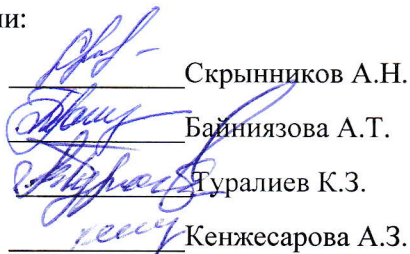 ли:
Скрынников А.Н.
Байниязова А.Т.
Туралиев К.З.
Кенжесарова А.З.